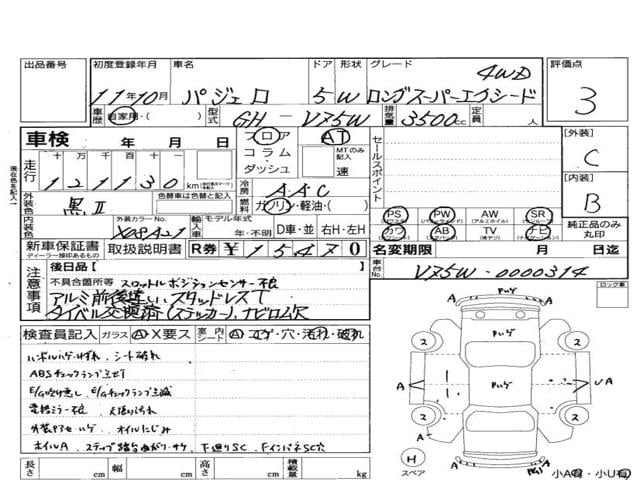 出品番号 初度登録年月 車名 ドア 形状 グレード 評価点
11年10月 パジェロ 5 W ロングスーパーエクシード 4WD 3
車歴 自家用・( ) 型式 GH-V75W 排気量 3500cc 定員 人
車検 年 月 日 フロア AT セールスポイント [外装]
コラム・ダッシュ MTのみ記入 速 C
走行 十万千百十一 121130km 冷房 AAC [内装]
外装色 黒Ⅱ 色替車は色替と記入 燃料 ガソリン・軽油・( ) B
内装色 外装カラーNo. X08A21 輸入車 モデル年式 年・不明 D車・並 右H・左H
PS PW AW SR 純正品のみ丸印
カワ AB TV ナビ
新車保証書 取扱説明書 R券 ¥15470 名変期限 月 日迄
ディーラー捺印あるもの
注意事項 後日品[ ] 車台No. V75W-0000314
不具合箇所等 スロットルポジションセンサー不良 ロック車
アルミ前後違い、スタッドレスT
タイベル交換済(ステッカー)、ナビロム欠
検査員記入 ガラス A・X要ス 室内シート A・コゲ・穴・汚れ・破れ
ハンドルハゲ・すれ、シート破れ
ABSチェックランプ点灯
E/G吹け悪し E/Gチェックランプ点滅
電格ミラー不良 天張り汚れ
外装PタセハゲE オイルにじみ
ホイルA 下廻りSC
長さ cm 幅 cm 高さ cm 積載量 kg
Pハゲ
Pハゲ
Pハゲ
2 2 2 2
A A UA
H スペア
A A
小A有・小U有